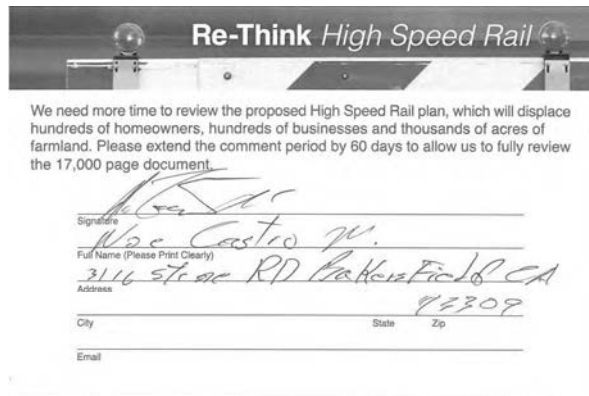 Re-Think High Speed Rail
We need more time to review the proposed High Speed Rail plan, which will displace
hundreds of homeowners, hundreds of businesses and thousands of acres of
farmland. Please extend the comment period by 60 days to allow us to fully review
the 17,000 page document.
Signature
Noe Castro M.
Full Name (Please Print Clearly)
3116 RD Bakersfield CA
Address
93309
City State Zip
Email